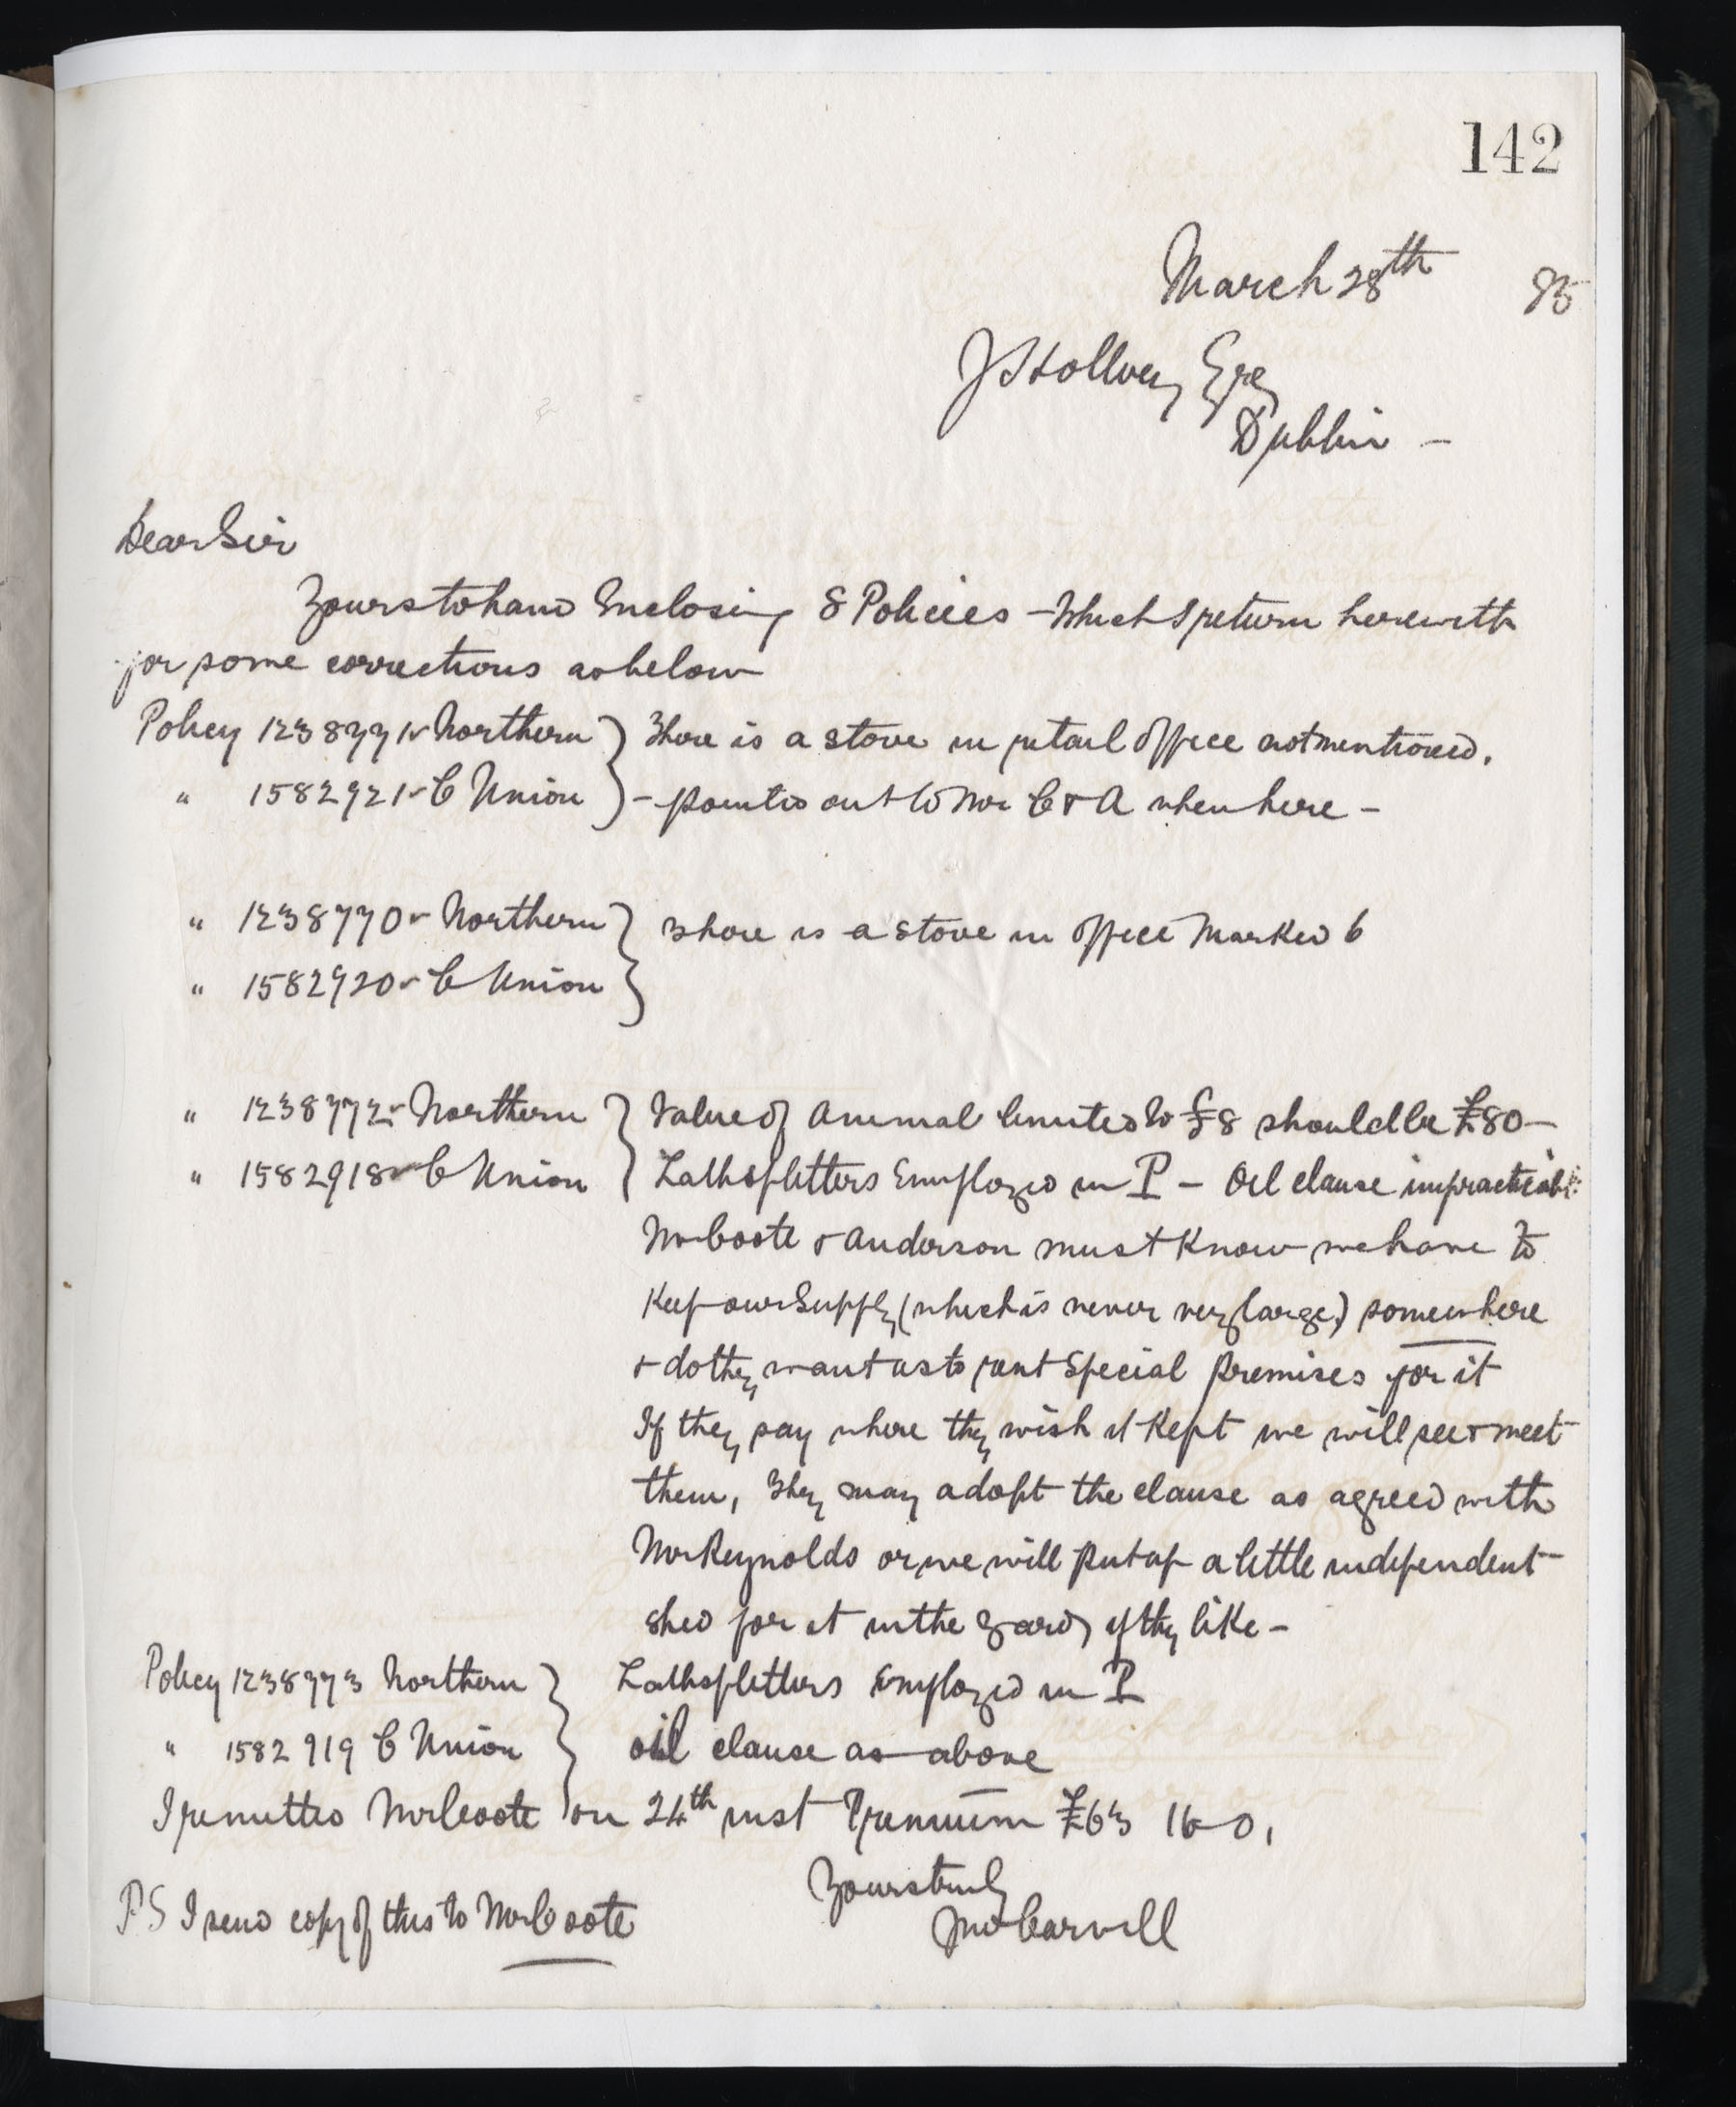 142
March 28th 95
J S Hollvey Esqe
Dublin -
Dear Sir
Yours to hand Enclosing 8 Policies - Which I return herewith
for some corrections as below
Policy 1238771 Northern } There is a stove in retail office not mentioned.
" 1582921 C Union } - pointed out to Mr C & A when here -
" 1238770 Northern } There is a stove in office marked 6
" 1582920 C Union }
" 1238772 Northern } Value of Animal limited to £8 should be £80 -
" 1582918 C Union } Lathsplitters Employed in P - Oil clause impracticable
Mr Coote & Anderson must know we have to
Keep our supply (which is never very large) somewhere
& do they want us to rent special premises for it
If they say where they wish it kept we will see & meet
them, They may adopt the clause as agreed with
Mr Reynolds or we will put up a little independent
shed for it in the yard if they like -
Policy 1238773 Northern } Lathsplitters Employed in P
" 1582919 C Union } oil clause as above
I remitted Mr Coote on 24th inst Premium £63 16 0,
Yours truly
Jno Carvill
PS I send copy of this to Mr Coote